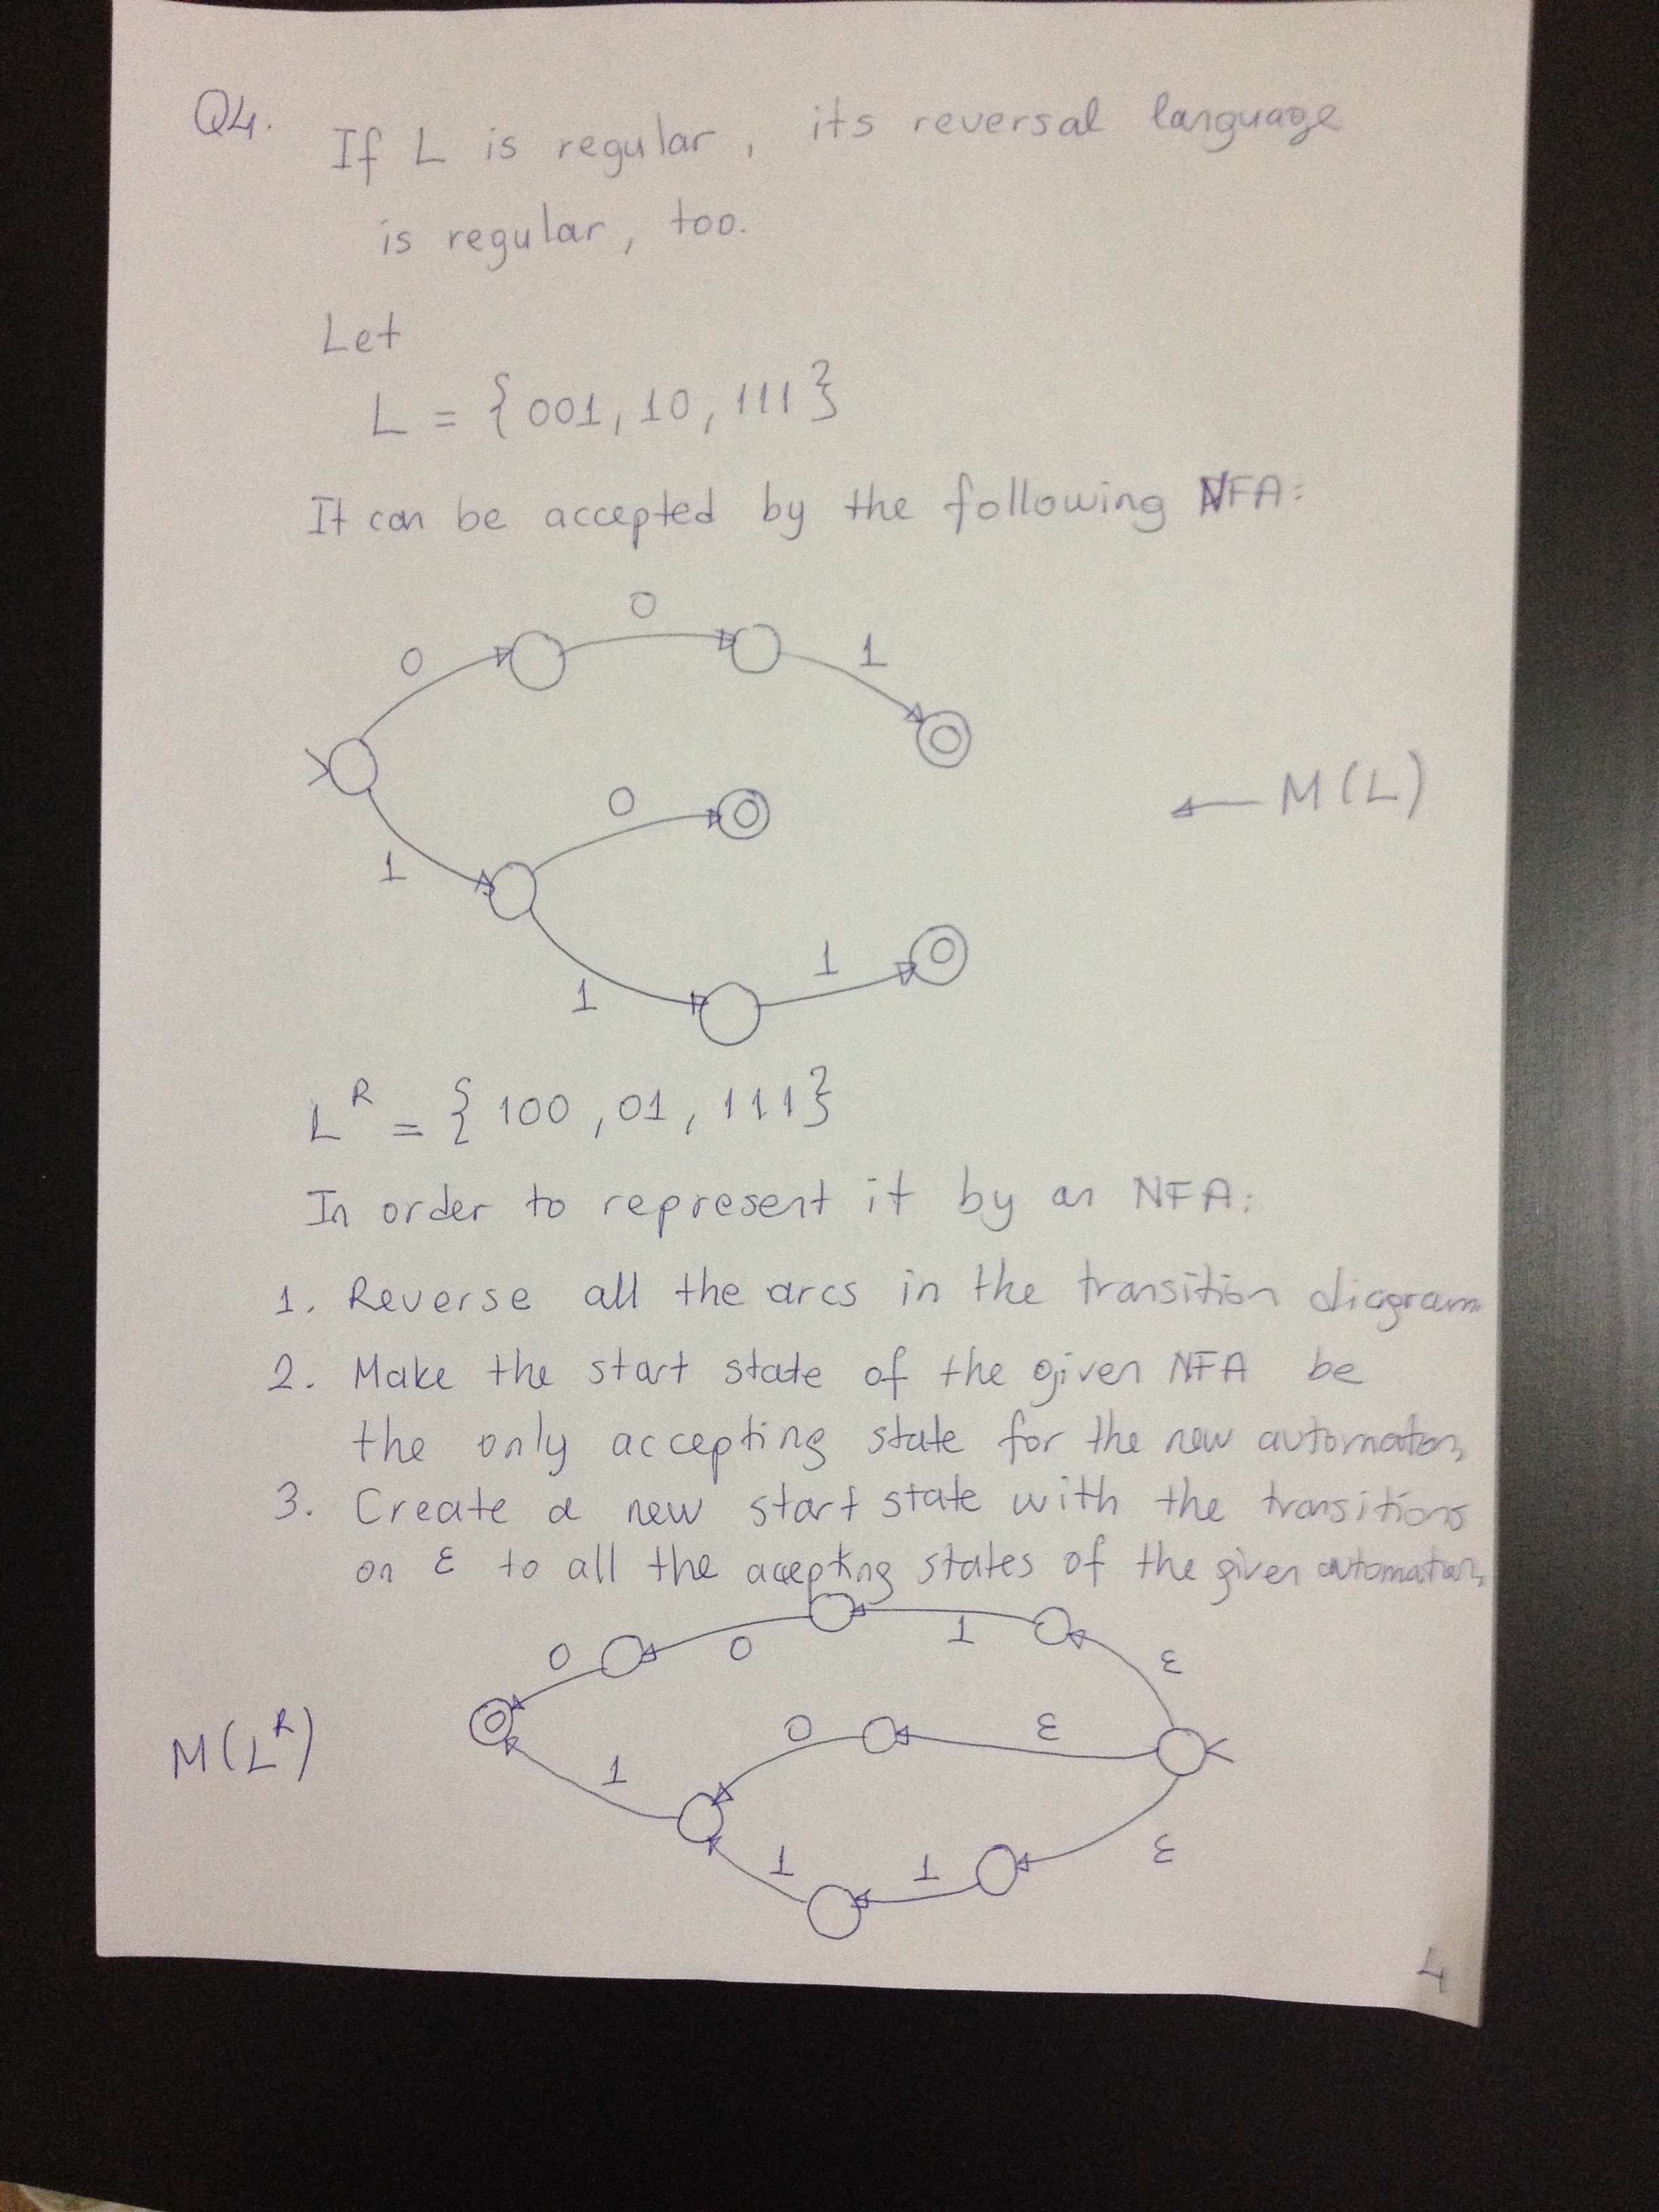 Q4. If L is regular, its reversal language
is regular, too.
Let
L = {001, 10, 111}
It can be accepted by the following NFA:
0
0
1
0
1
1
1
← M(L)
L^R = {100, 01, 111}
In order to represent it by an NFA:
1. Reverse all the arcs in the transition diagram
2. Make the start state of the given NFA be
the only accepting state for the new automaton
3. Create a new start state with the transitions
on ε to all the accepting states of the given automaton
0
0
1
ε
M(L^R)
1
0
ε
1
1
ε
4